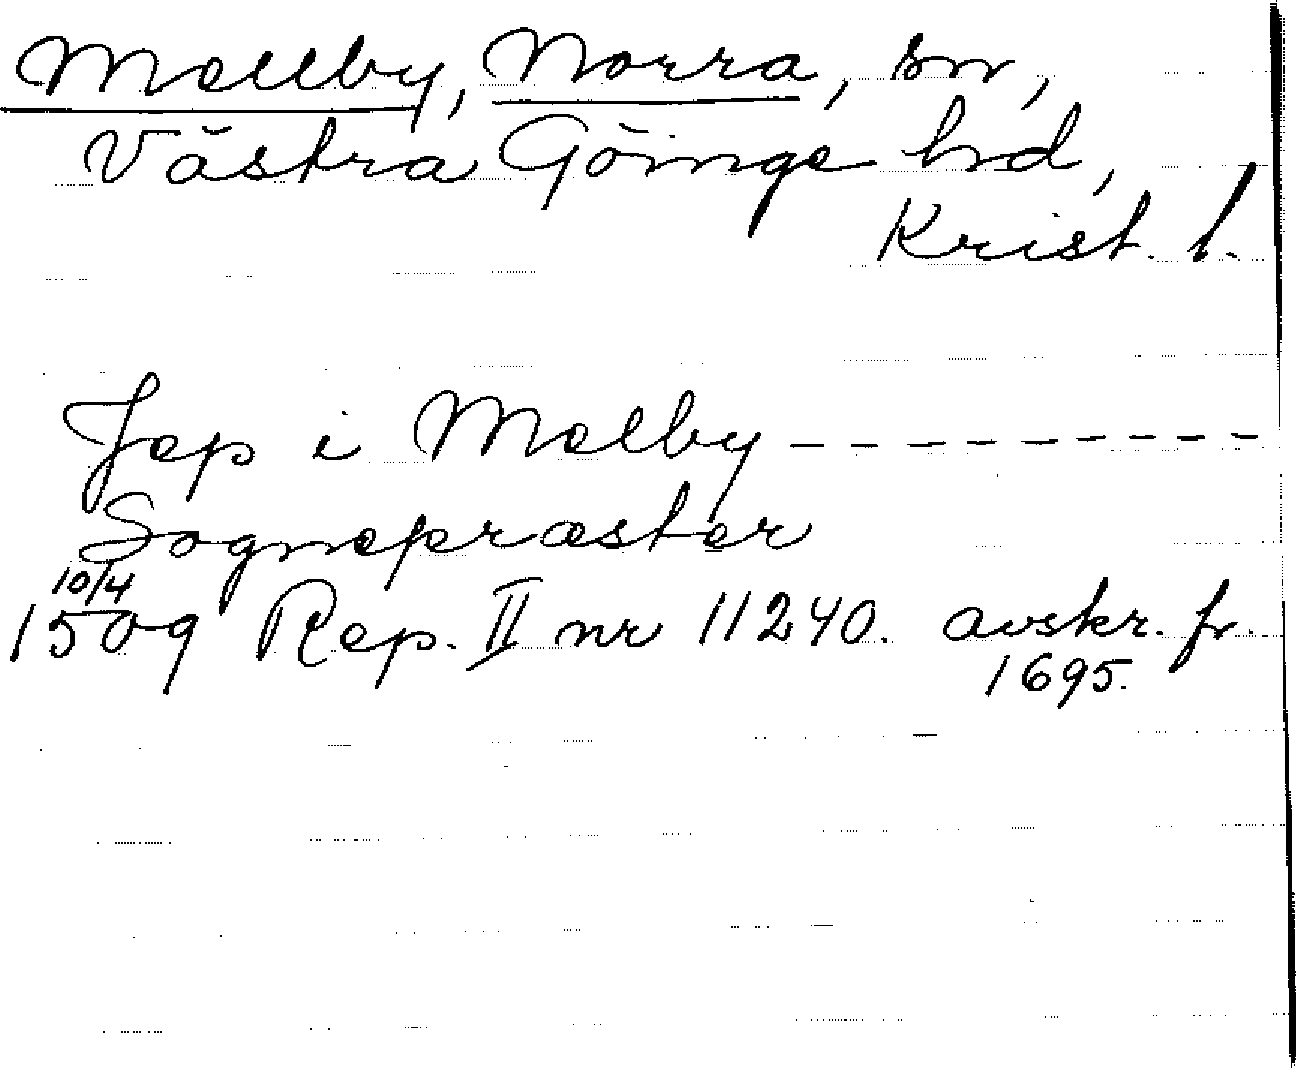 Mellby, Norra, sn,
Västra Göinge hd,
Krist. l.
Jep i Melby - - - - - - - - -
Sognepræster
10/4
1509 Rep. II nr 11240. avskr. fr.
1695.